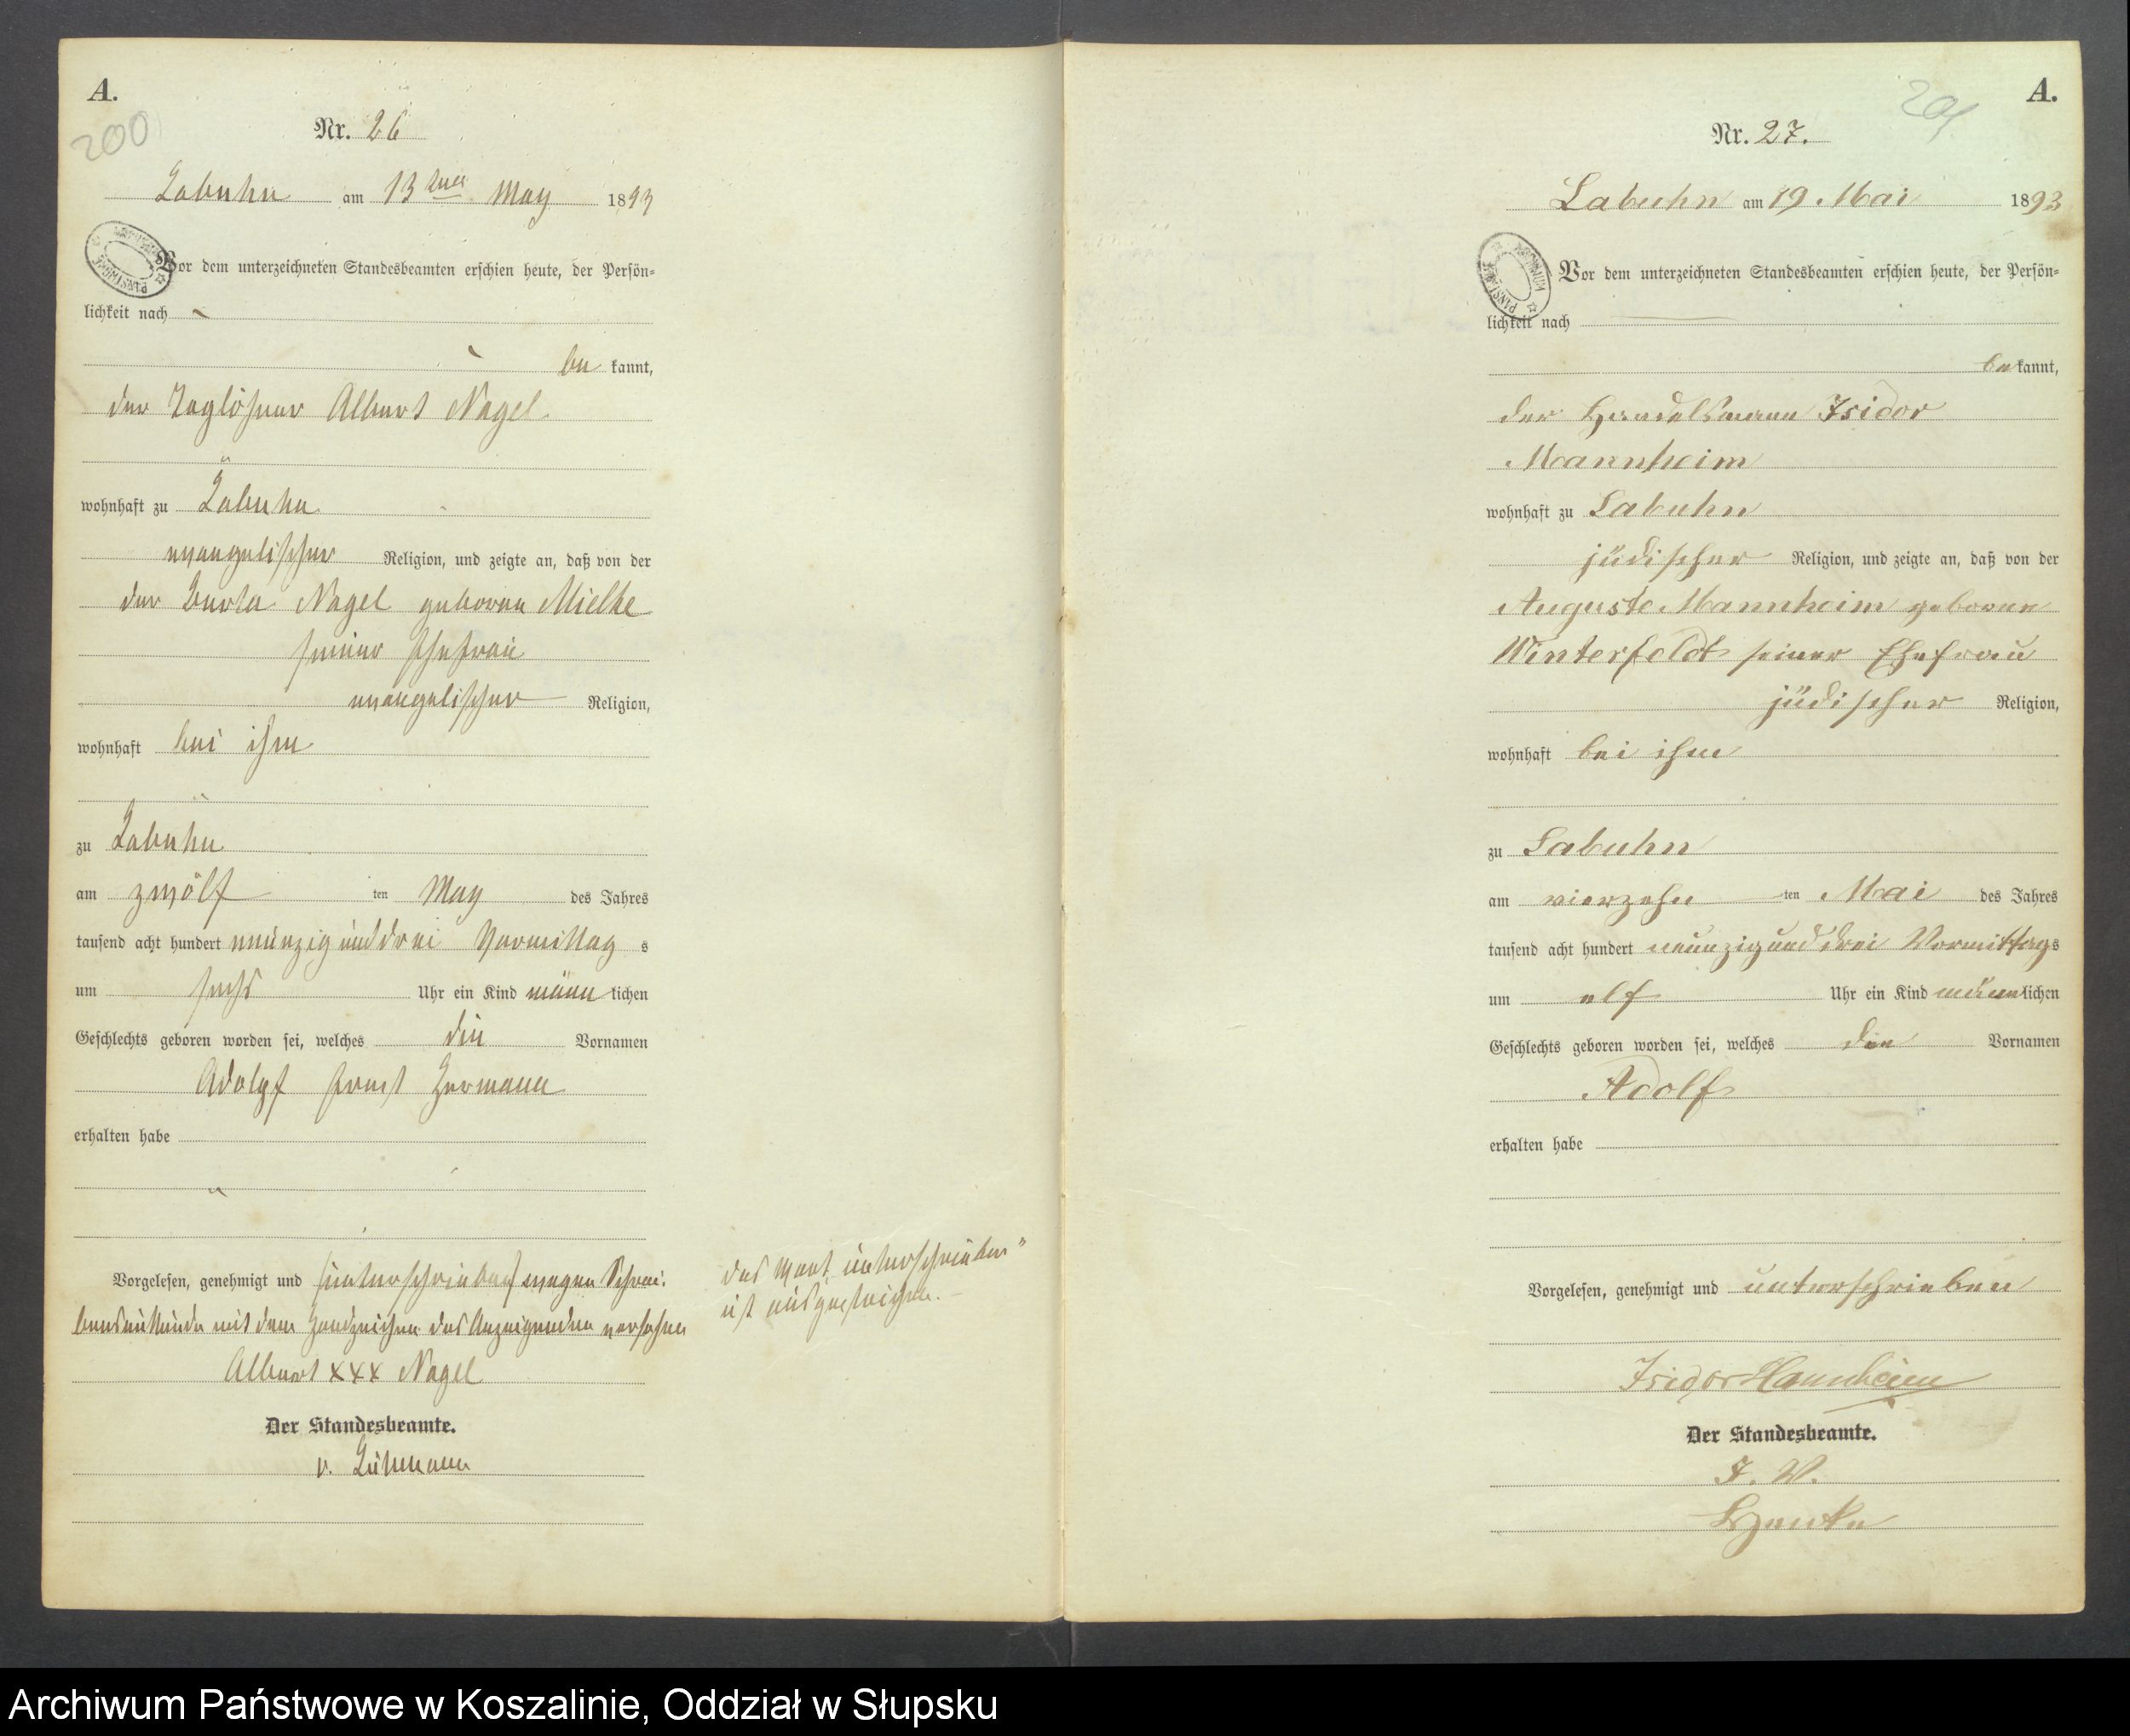 A.
200
Nr. 26
Labuhn am 13ten May 1893
Vor dem unterzeichneten Standesbeamten erschien heute, der Persön=
lichkeit nach
be kannt,
der Taglöhner Albert Nagel
wohnhaft zu Labuhn
evangelischer Religion, und zeigte an, daß von der
der Berta Nagel geborne Mielke
seiner Ehefrau
evangelischer Religion,
wohnhaft bei ihm
zu Labuhn
am zwölf ten May des Jahres
tausend acht hundert neunzig und drei Vormittag s
um sechs Uhr ein Kind männ lichen
Geschlechts geboren worden sei, welches die Vornamen
Adolpf Ernst Hermann
erhalten habe
Vorgelesen, genehmigt und unterschrieben wegen Schrei-
bensunkunde mit dem Handzeichen des Anzeigenden versehen
Albert xxx Nagel
Der Standesbeamte.
v.
das Wort „unterschrieben"
ist ausgestrichen.
A.
201
Nr. 27.
Labuhn am 19 Mai 1893
Vor dem unterzeichneten Standesbeamten erschien heute, der Persön=
lichkeit nach
be kannt,
der Handelsmann Isidor
Mannheim
wohnhaft zu Labuhn
jüdischer Religion, und zeigte an, daß von der
Auguste Mannheim geborne
Winterfeldt seiner Ehefrau
jüdischer Religion,
wohnhaft bei ihm
zu Labuhn
am vierzehn ten Mai des Jahres
tausend acht hundert neunzig und drei Vormittags
um elf Uhr ein Kind männlichen
Geschlechts geboren worden sei, welches den Vornamen
Adolf
erhalten habe
Vorgelesen, genehmigt und unterschrieben
Isidor Mannheim
Der Standesbeamte.
I. V.
Archiwum Państwowe w Koszalinie, Oddział w Słupsku